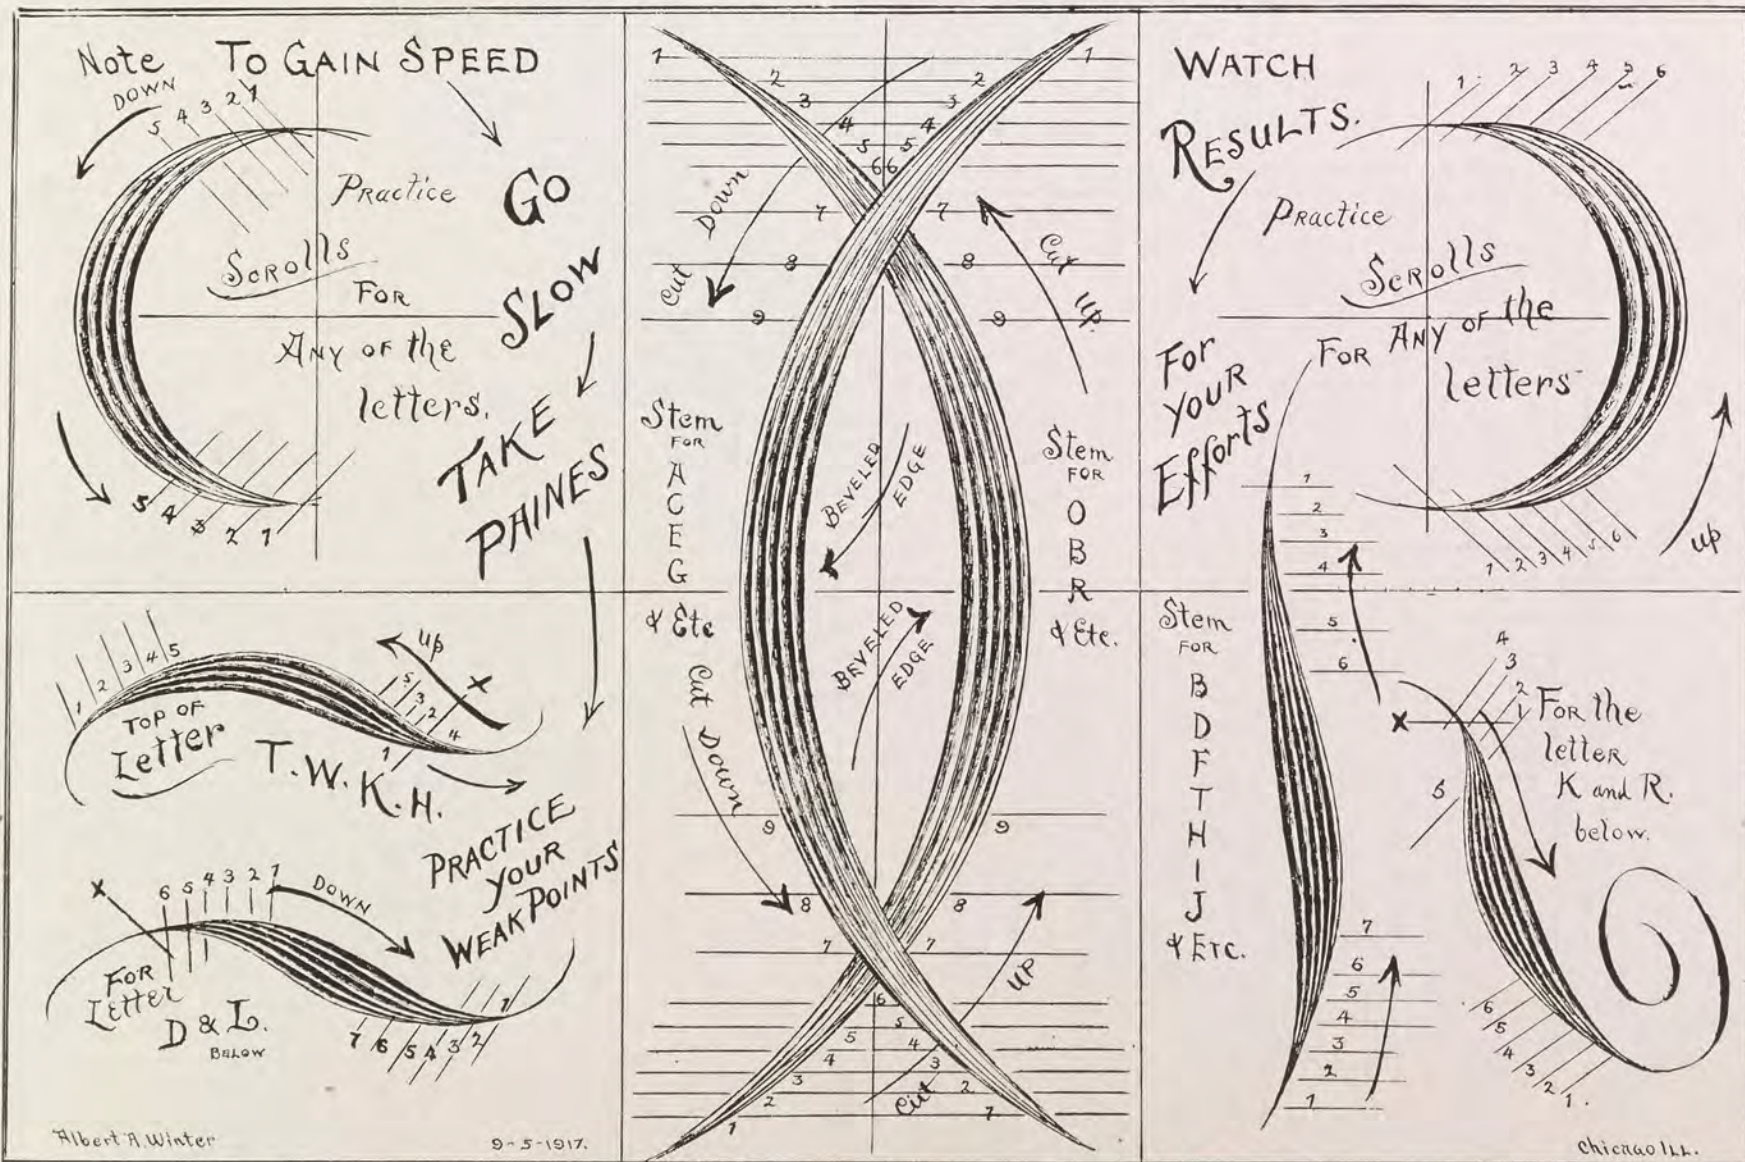 Note To Gain Speed
Down
5 4 3 2 1
Practice
Scrolls
For
Any of the
letters.
5 4 3 2 1
Go
Slow
Take
Paines
1 2 3 4 5
up
X
5 3 2
1 4
Top of
Letter
T. W. K. H.
Practice
Your
Weak Points
X
6 5 4 3 2 1
Down
For
Letter
D & L.
Below
7 6 5 4 3 2 1
Albert A. Winter
9-5-1917.
1 1
2 2
3 3
4 4
5 5
6 6
7 7
8 8
9 9
Cut Down
Cut Up.
Stem
for
A
C
E
G
& Etc
Beveled
Edge
Stem
for
O
B
R
& Etc.
Beveled
Edge
Cut Down
9 9
8 8
7 7
6
5 5
4 4
3 3
2 2
1 1
Cut UP
Watch
Results.
1 2 3 4 5 6
Practice
Scrolls
For Any of the
letters
For
Your
Efforts
1 2 3 4 5 6
up
1
2
3
4
5
6
Stem
for
B
D
F
T
H
I
J
& Etc.
7
6
5
4
3
2
1
4
3
2
1
X
For the
letter
K and R.
below.
5
6
5
4
3
2
1.
Chicago Ill.